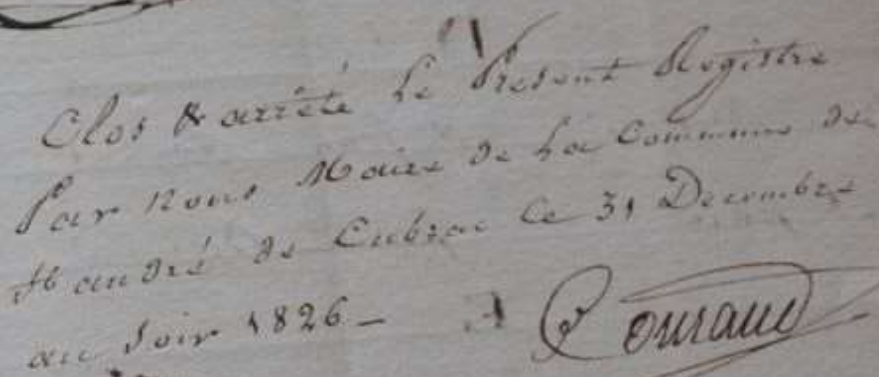 Clos & arrêté Le Present Registre
Par Nous Maire de La Commune de
St andré de Cubzac Ce 31 Decembre
au Soir 1826 –